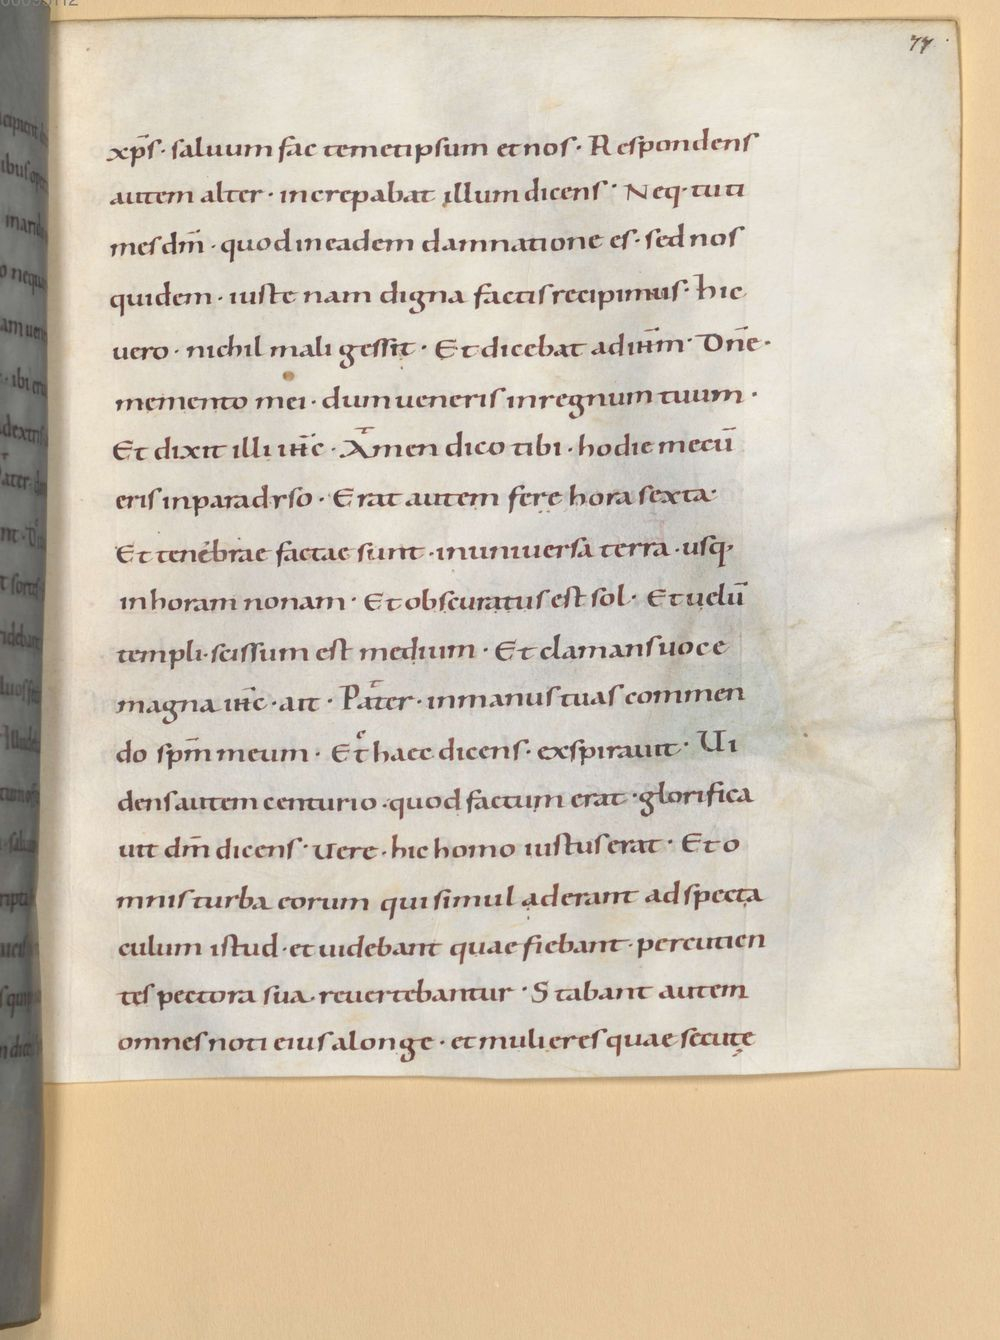 77
xp̄s · saluum fac temetipsum et nos · Respondens
autem alter · increpabat illum dicens · Neq· tu ti
mes dm̄ · quod in eadem damnatione es · sed nos
quidem · iuste nam digna factis recipimus · hic
uero · nichil mali gessit · Et dicebat ad ihm̄ · Dn̄e ·
memento mei · dum ueneris in regnum tuum ·
Et dixit illi ihc̄ · Amen dico tibi · hodie mecū
eris in paradyso · Erat autem fere hora sexta ·
Et tenebrae factae sunt · in uniuersa terra · usq·
in horam nonam · Et obscuratus est sol · Et uelū
templi · scissum est medium · Et clamans uoce
magna ihc̄ · ait · Pater · in manus tuas commen
do sp̄m meum · Et haec dicens · exspirauit · Ui
dens autem centurio · quod factum erat · glorifica
uit dm̄ dicens · Uere · hic homo iustus erat · Et o
mnis turba eorum qui simul aderant ad specta
culum istud · et uidebant quae fiebant · percutien
tes pectora sua · reuertebantur · Stabant autem
omnes noti eius a longe · et mulieres quae secutę